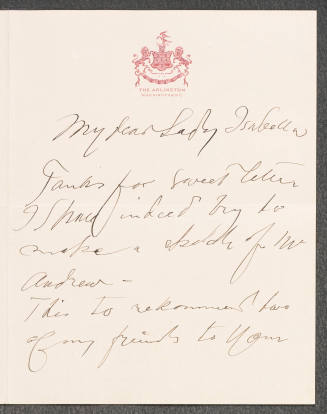 THE ARLINGTON
WASHINGTON D.C.
My dear Lady Isabella
Tanks for sweet letter
I shall indeed try to
make a sketch of Mr
Andrew –
This to rekomment two
of my friends to your